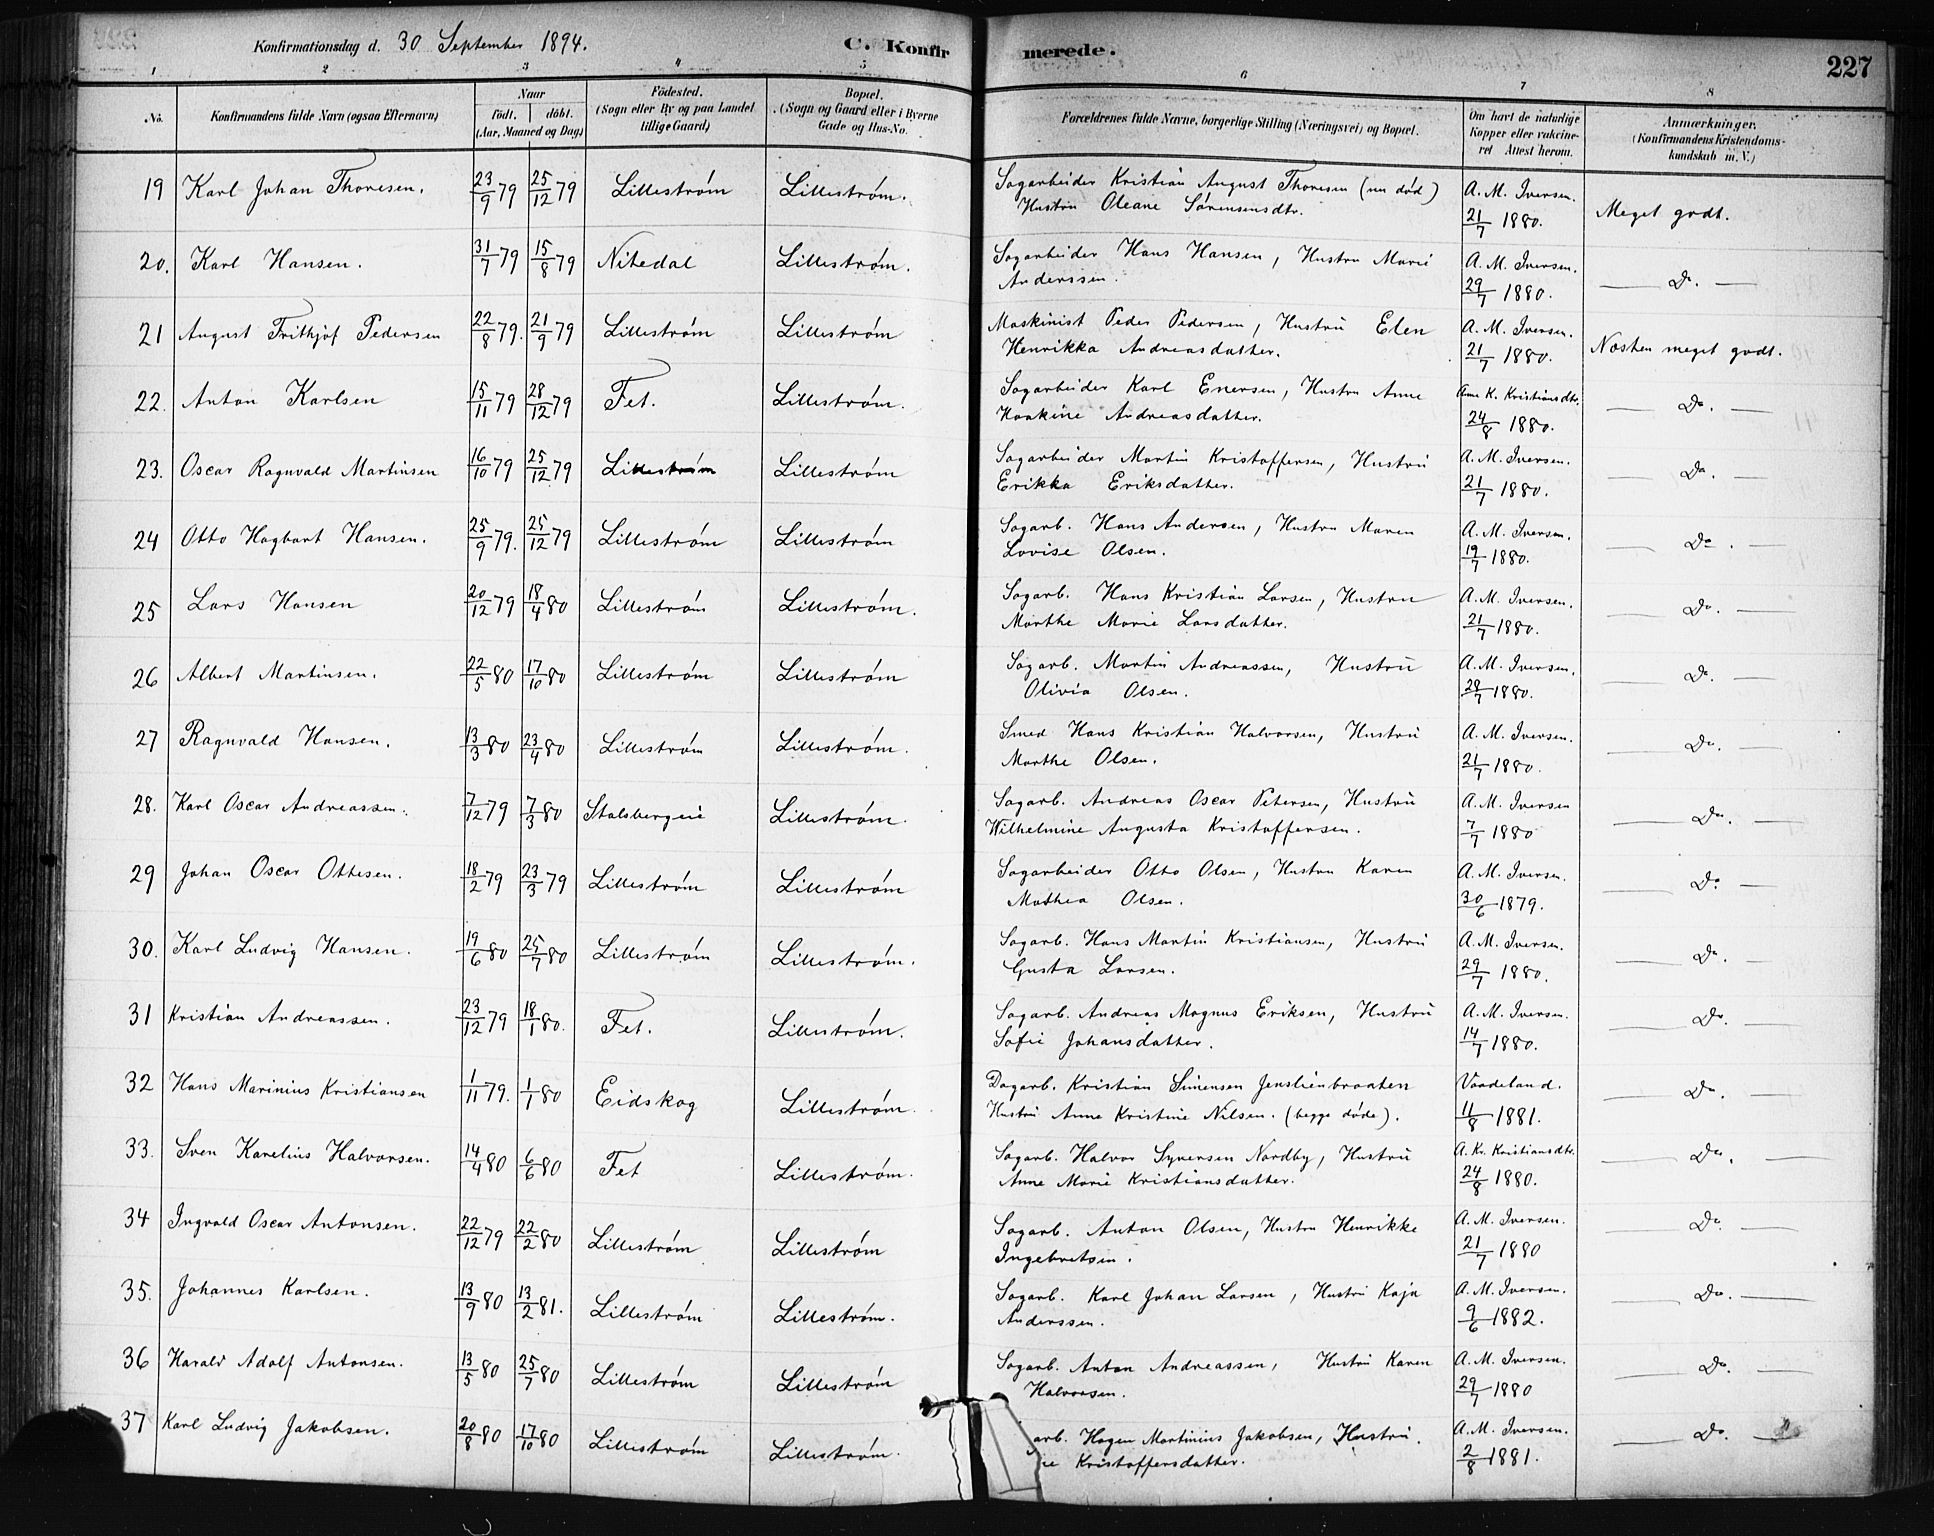 Konfirmationsdag d. 30 September 1894. C. Konfirmerede. 227
1 2 3 4 5 6 7 8
No. Konfirmandens fulde Navn (ogsaa Efternavn) Naar født. døbt. (Aar, Maaned og Dag) Fødested. (Sogn eller By og paa Landet tillige Gaard) Bopæl. (Sogn og Gaard eller i Byerne Gade og Hus-No. Forældrenes fulde Navne, borgerlige Stilling (Næringsvei) og Bopæl. Om havt de naturlige Kopper eller vakcineret Attest herom. Anmærkninger. (Konfirmandens Kristendomskundskab m. V.)
19 Karl Johan Thoresen. 23/9 79 25/12 79 Lillestrøm Lillestrøm. Sagarbeider Kristian August Thoresen (nu død) A. M. Iversen.
Hustru Oleane Sørensensdtr. 21/7 1880. Meget godt.
20. Karl Hansen. 31/7 79 15/8 79 Nitedal Lillestrøm. Sagarbeider Hans Hansen, Hustru Marie A. M. Iversen.
Anderssen. 29/7 1880. Do.
21 August Frithjof Pedersen 22/8 79. 21/9 79 Lillestrøm Lillestrøm Maskinist Peder Pedersen, Hustru Elen A. M. Iversen.
Henrikka Andreasdatter. 21/7 1880. Næsten meget godt.
22. Anton Karlsen 15/11 79 28/12 79 Fet. Lillestrøm. Sagarbeider Karl Enersen, Hustru Anne Anne K. Kristiansdtr.
Haakine Andreasdatter. 24/8 1880. Do.
23. Oscar Ragnvald Martinsen 16/10 79 25/12 79 Lillestrøm Lillestrøm Sagarbeider Martin Kristoffersen, Hustru A. M. Iversen.
Erikka Eriksdatter. 21/7 1880. Do
24 Otto Hagbart Hansen. 25/9 79. 25/12 79 Lillestrøm Lillestrøm Sagarb. Hans Andersen, Hustru Maren A. M. Iversen.
Lovise Olsen. 19/7 1880. Do.
25 Lars Hansen 20/12 79 18/4 80 Lillestrøm Lillestrøm. Sagarb. Hans Kristian Larsen, Hustru A. M. Iversen.
Marthe Marie Larsdatter. 21/7 1880. Do.
26 Albert Martinsen. 22/5 80 17/10 80 Lillestrøm Lillestrøm Sagarb. Martin Andreassen, Hustru A. M. Iversen.
Olivia Olsen. 1880. Do.
27 Ragnvald Hansen. 13/3 80 23/4 80 Lillestrøm Lillestrøm. Smed Hans Kristian Halvorsen, Hustru A. M. Iversen.
Marthe Olsen. 21/7 1880. Do.
28. Karl Oscar Andreassen. 7/12 79 7/3 80 Stalsbergeie Lillestrøm. Sagarb. Andreas Oscar Petersen, Hustru A. M. Iversen
Wilhelmine Augusta Kristoffersen. 7/7 1880 Do.
29 Johan Oscar Ottesen. 18/2 79 23/3 79 Lillestrøm Lillestrøm Sagarbeider Otto Olsen, Hustru Karen A. M. Iversen.
Mathea Olsen. 30/6 1879. Do
30. Karl Ludvig Hansen. 19/6 80 25/7 80 Lillestrøm Lillestrøm. Sagarb. Hans Martin Kristiansen, Hustru A. M. Iversen.
Gusta Larsen. 29/7 1880. Do.
31 Kristian Andreassen. 23/12 79 18/1 80. Fet. Lillestrøm. Sagarb. Andreas Magnus Eriksen, Hustru A. M. Iversen.
Sofie Johansdatter. 14/7 1880. Do.
32 Hans Marinius Kristiansen 1/11 79. 1/1 80 Eidskog Lillestrøm. Dagarb. Kristian Simensen Jenslienbraaten Vaadeland.
Hustru Anne Kristine Nilsen. (begge døde). 11/8 1881. Do.
33. Sven Karelius Halvorsen. 14/4 80 6/6 80 Fet Lillestrøm. Sagarb. Halvor Syversen Nordby, Hustru A. Kr. Kristiansdtr.
Anne Marie Kristiansdatter. 24/8 1880. Do.
34 Ingvald Oscar Antonsen. 22/12 79 22/2 80 Lillestrøm Lillestrøm Sagarb. Anton Olsen, Hustru Henrikke A. M. Iversen.
Ingebretsen. 21/7 1880 Do
35. Johannes Karlsen. 13/9 80 13/2 81. Lillestrøm Lillestrøm. Sagarb. Karl Johan Larsen, Hustru Kaja A. M. Iversen.
Anderssen. 9/6 1882. Do.
36 Harald Adolf Antonsen. 13/5 80 25/7 80 Lillestrøm Lillestrøm Sagarb. Anton Andreassen, Hustru Karen A. M. Iversen.
Halvorsen. 29/7 1880 Do.
37 Karl Ludvig Jakobsen. 20/8 80 17/10 80 Lillestrøm Lillestrøm. arb. Hagen Martinius Jakobsen, Hustru. A. M. Iversen.
Kristoffersdatter. 2/8 1881. Do.